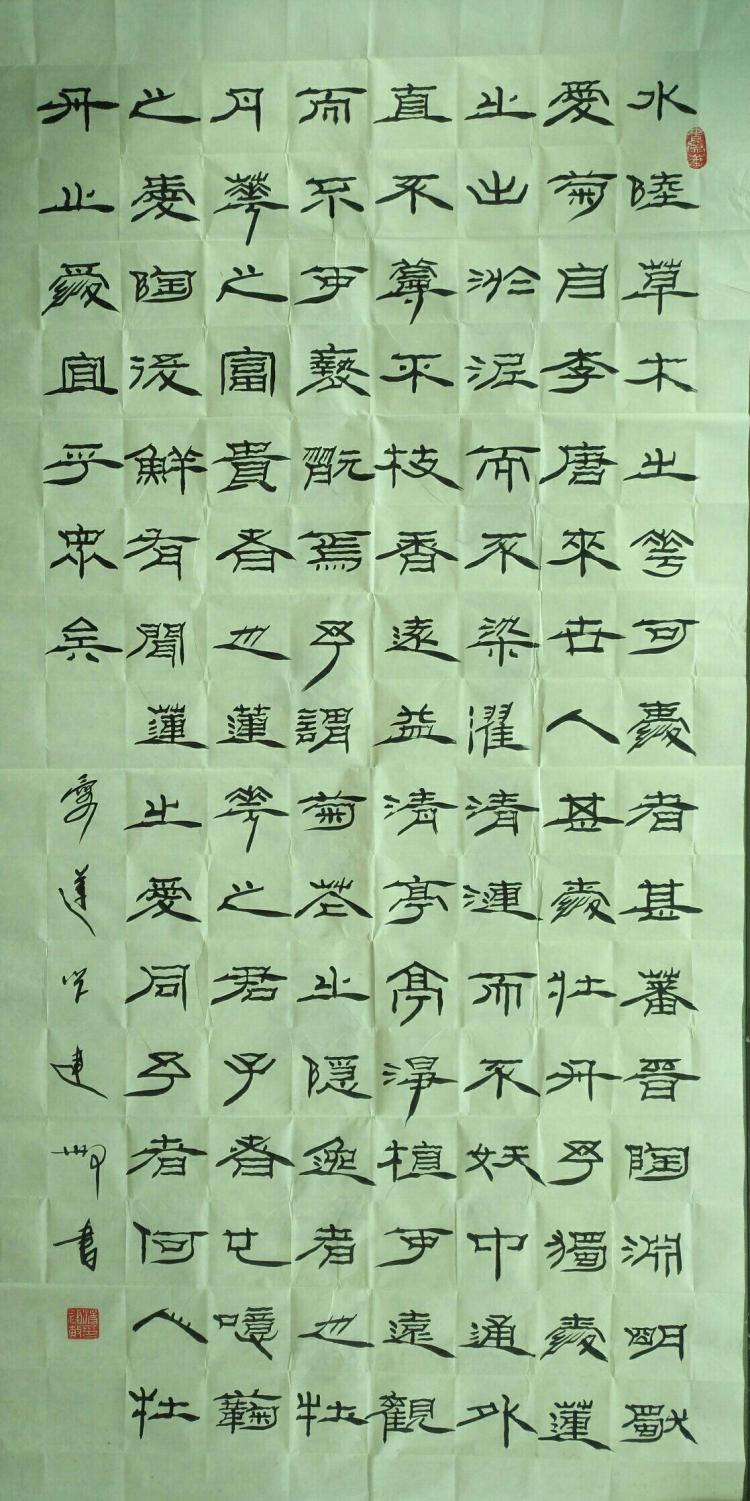 水陸草木之華可愛者甚蕃晉陶淵明獨
愛菊自李唐來世人甚愛牡丹予獨愛蓮
之出淤泥而不染濯清漣而不妖中通外
直不蔓不枝香遠益清亭亭淨植可遠觀
而不可褻翫焉予謂菊花之隱逸者也牡
丹華之富貴者也蓮華之君子者也噫菊
之愛陶後鮮有聞蓮之愛同予者何人牡
丹之愛宜乎眾矣
愛蓮说建書